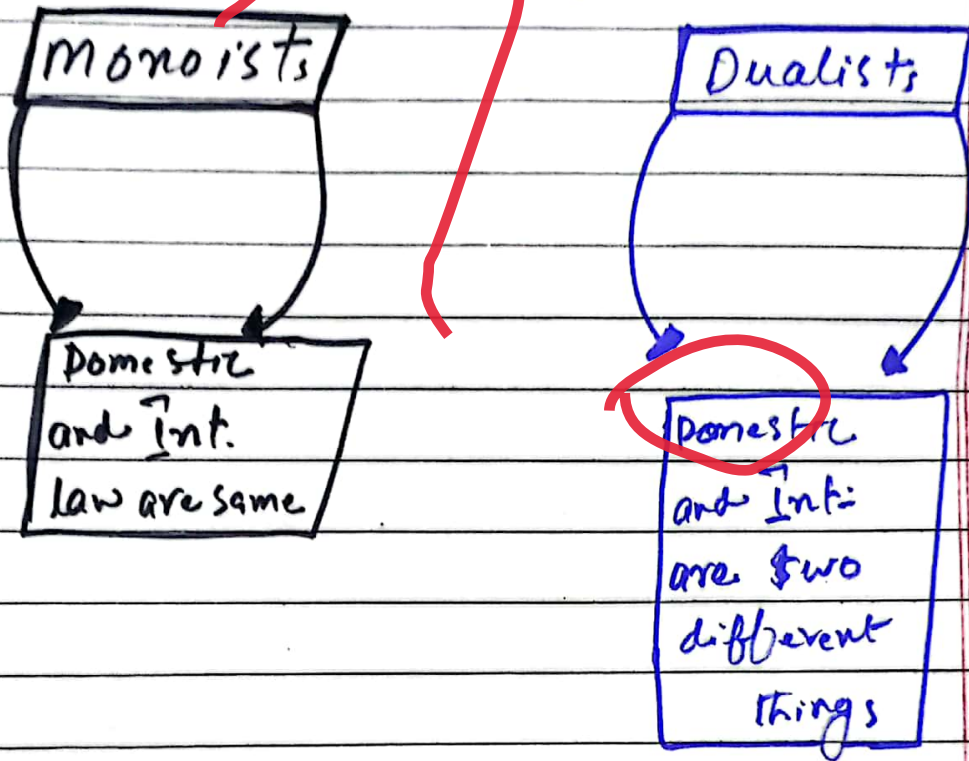 Monoists
Domestic
and Int.
law are same
Dualists
Domestic
and Int:
are two
different
things